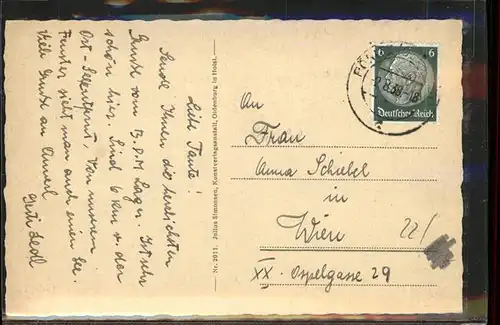 Liebe Tante!
Sende Ihnen die herzlichsten
Grüße vom B.D.M. Lager. Ist sehr
schön hier. Sind 6 km v. der
Ost-See entfernt. Von unserem
Fenster sieht man auch einen See.
Viele Grüße an
Gusti Sedl
Nr. 2011. Julius Simonsen, Kunstverlagsanstalt, Oldenburg in Holst.
6 6
Deutsches Reich
An
Frau
Anna Schiebel
in
Wien 22/
XX. Ospelgasse 29